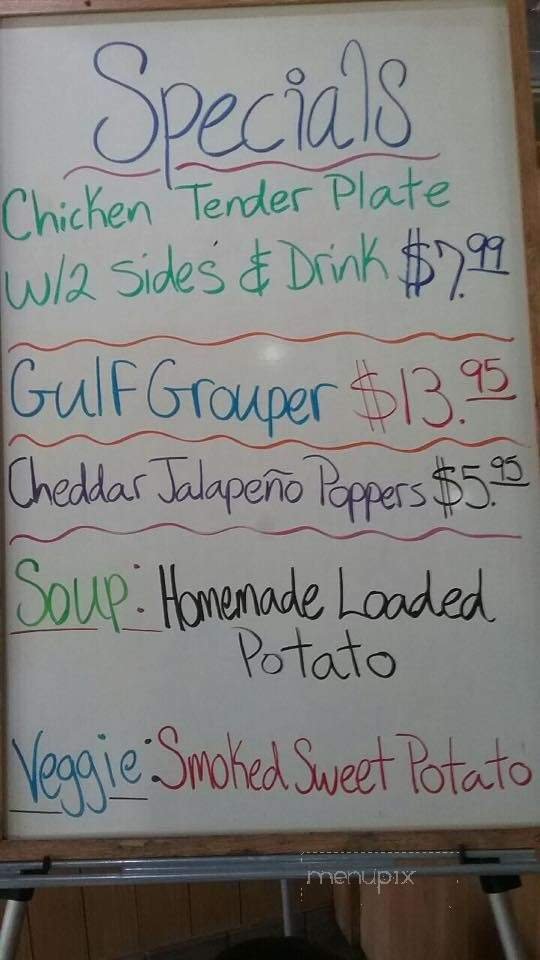 Specials
Chicken Tender Plate
W/2 sides & Drink $7.99
Gulf Grouper $13.95
Cheddar Jalapeño Poppers $5.95
Soup: Homemade Loaded
Potato
Veggie: Smoked Sweet Potato
menupix